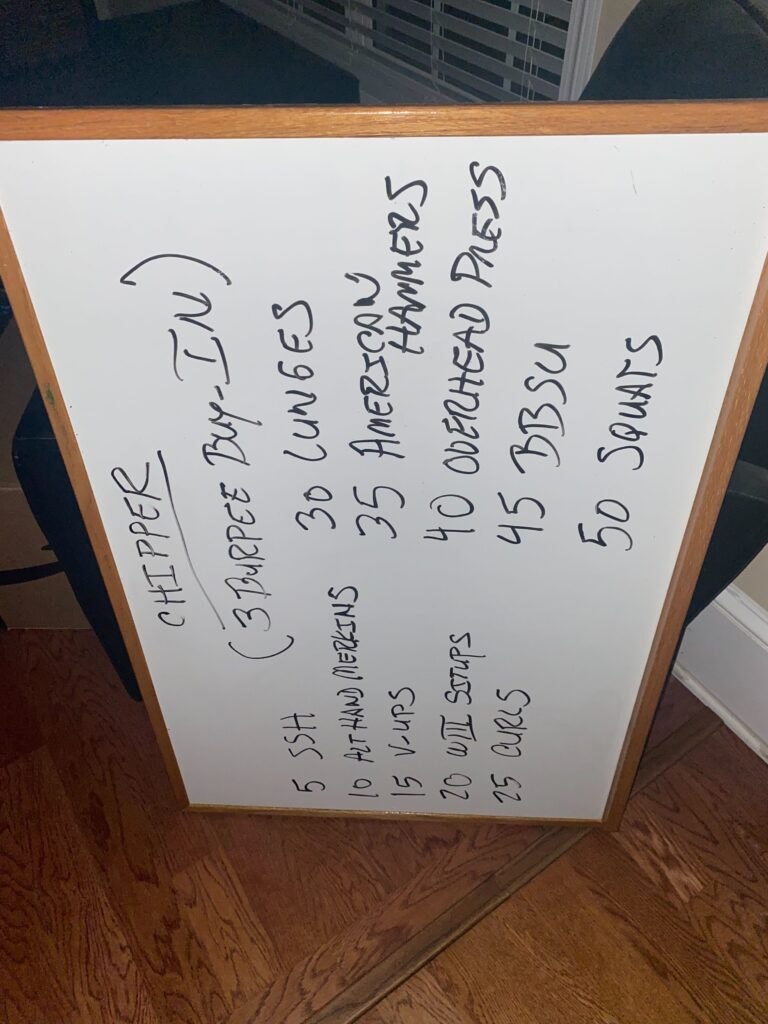 CHIPPER
(3 BURPEE BUY-IN)
5 SSH
10 ALT HAND MERKINS
15 V-UPS
20 WII SITUPS
25 CURLS
30 LUNGES
35 AMERICAN
HAMMERS
40 OVERHEAD PRESS
45 BBSU
50 SQUATS